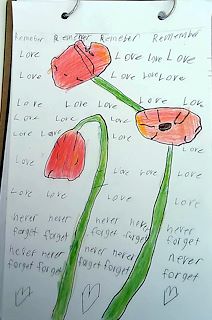 Remeber Remeber Remeber Remember
Love Love Love Love Love
Love Love Love Love
Love Love Love Love Love
Love Love Love Love
Love Love Love
Love Love Love Love
Love Love Love
Love Love Love
never never never never never
forget forget forget forget forget
never never never never never
forget forget forget forget forget